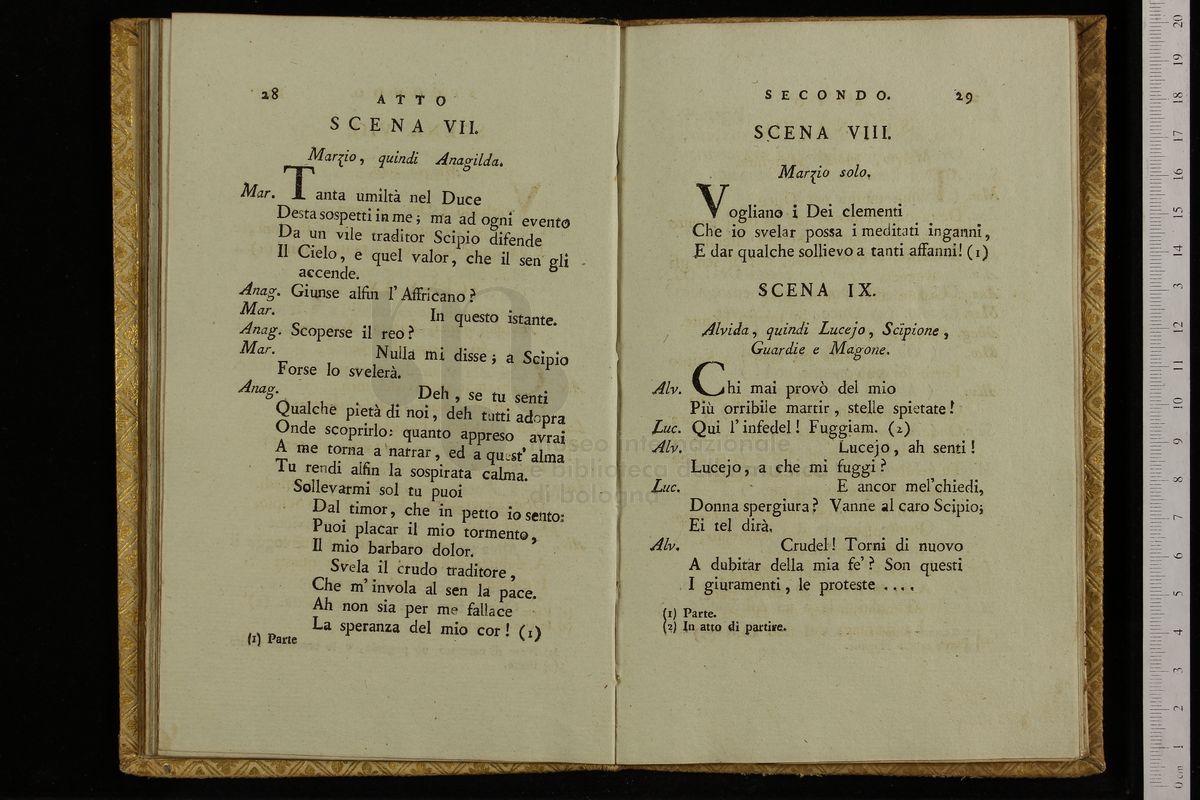 28
ATTO
SCENA VII.
Marzio, quindi Anagilda.
Mar. Tanta umiltà nel Duce
Desta sospetti in me; ma ad ogni evento
Da un vile traditor Scipio difende
Il Cielo, e quel valor, che il sen gli
accende.
Anag. Giunse alfin l'Affricano?
Mar. In questo istante.
Anag. Scoperse il reo?
Mar. Nulla mi disse; a Scipio
Forse lo svelerà.
Anag. Deh, se tu senti
Qualche pietà di noi, deh tutti adopra
Onde scoprirlo: quanto appreso avrai
A me torna a narrar, ed a quest' alma
Tu rendi alfin la sospirata calma.
Sollevarmi sol tu puoi
Dal timor, che in petto io sento:
Puoi placar il mio tormento,
Il mio barbaro dolor.
Svela il crudo traditore,
Che m'invola al sen la pace.
Ah non sia per me fallace
La speranza del mio cor! (1)
(1) Parte
SECONDO.
29
SCENA VIII.
Marzio solo.
Vogliano i Dei clementi
Che io svelar possa i meditati inganni,
E dar qualche sollievo a tanti affanni! (1)
SCENA IX.
Alvida, quindi Lucejo, Scipione,
Guardie e Magone.
Alv. Chi mai provò del mio
Più orribile martir, stelle spietate!
Luc. Qui l'infedel! Fuggiam. (2)
Alv. Lucejo, ah senti!
Lucejo, a che mi fuggi?
Luc. E ancor mel'chiedi,
Donna spergiura? Vanne al caro Scipio;
Ei tel dirà.
Alv. Crudel! Torni di nuovo
A dubitar della mia fe'? Son questi
I giuramenti, le proteste ....
(1) Parte.
(2) In atto di partire.
museo internazionale
e biblioteca della musica
di bologna
0 cm 1 2 3 4 5 6 7 8 9 10 11 12 13 14 15 16 17 18 19 20